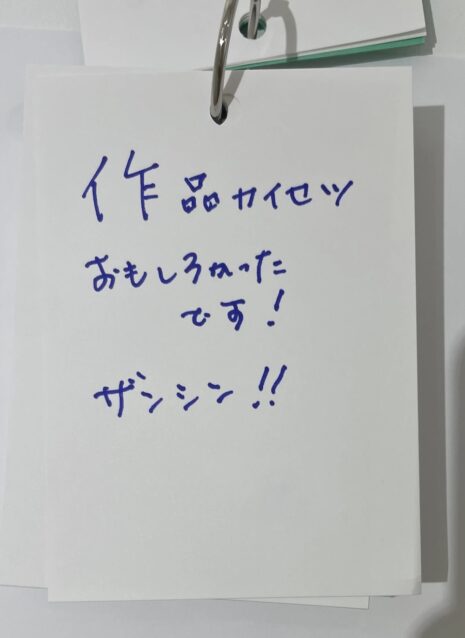 作品カイセツ
おもしろかった
です!
ザンシン!!